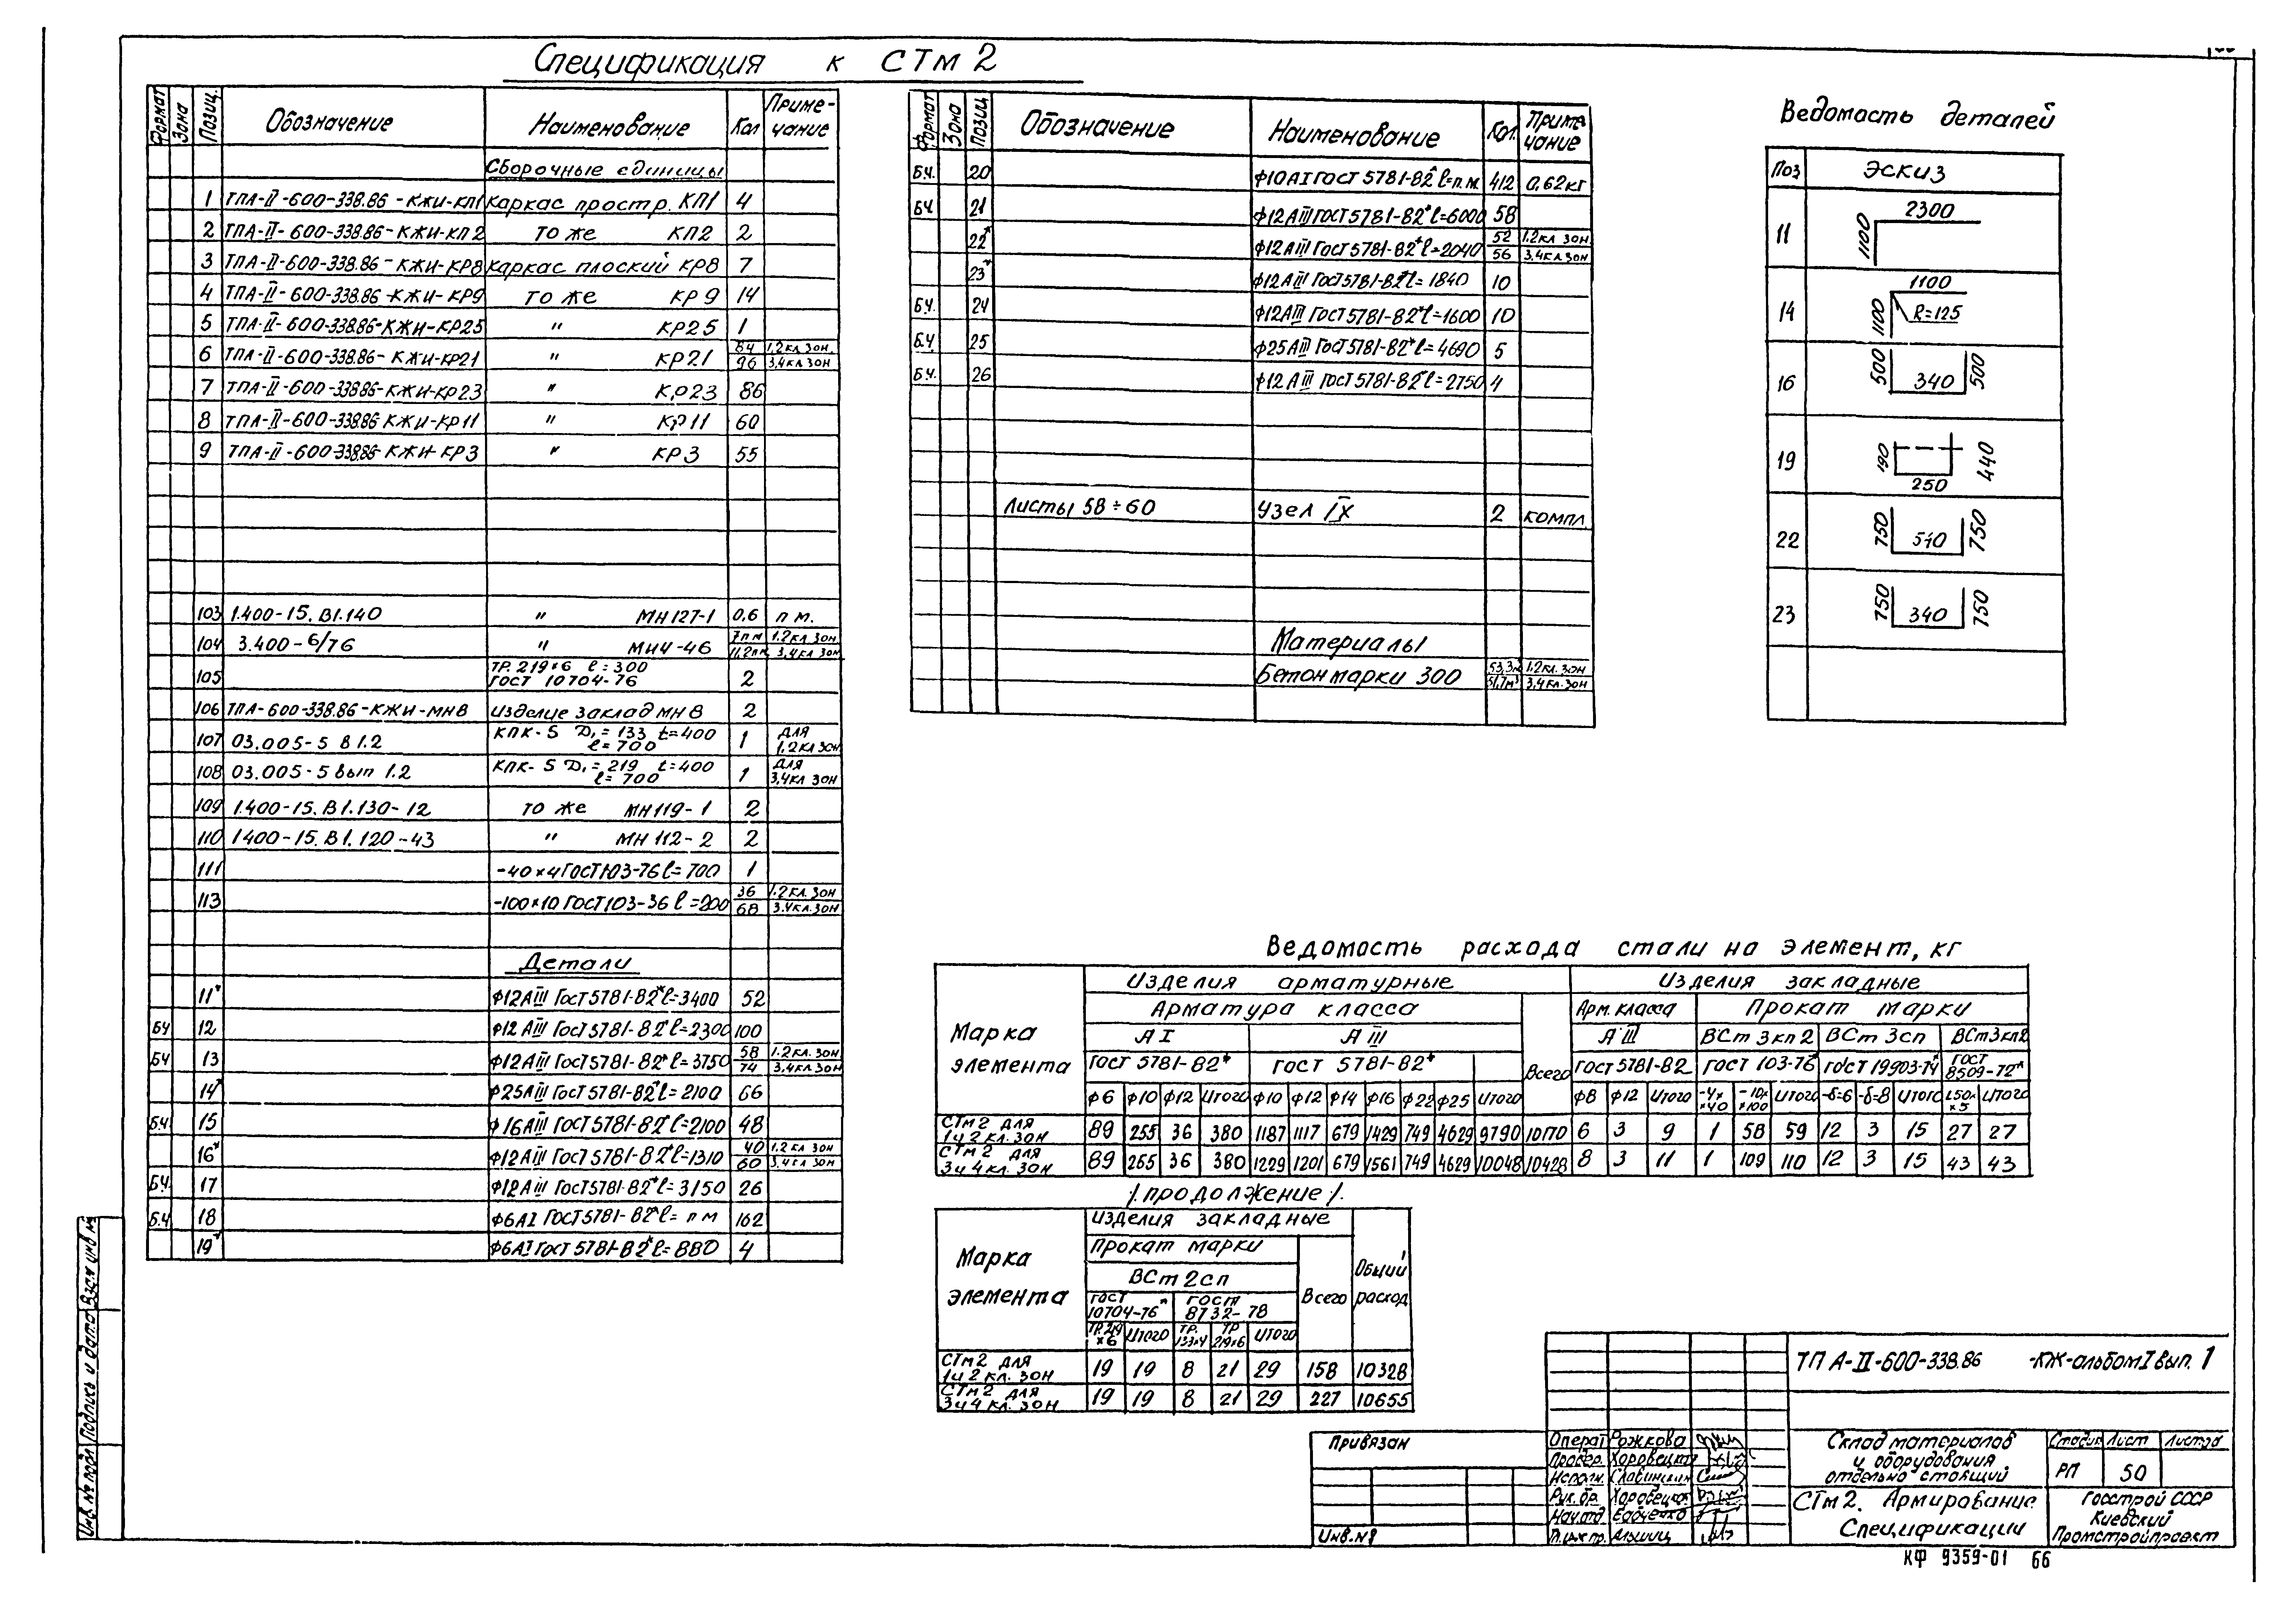 Спецификация к СТм 2
Формат Зона Позиц. Обозначение Наименование Кол Приме-чание
Сборочные единицы
1 ТПА-II-600-338.86-КЖИ-КП1 Каркас простр. КП1 4
2 ТПА-II-600-338.86-КЖИ-КП2 то же КП2 2
3 ТПА-II-600-338.86-КЖИ-КР8 Каркас плоский КР8 7
4 ТПА-II-600-338.86-КЖИ-КР9 то же КР9 14
5 ТПА-II-600-338.86-КЖИ-КР25 " КР25 1
6 ТПА-II-600-338.86-КЖИ-КР21 " КР21 84 1.2 кл зон.
96 3,4 кл зон
7 ТПА-II-600-338.86-КЖИ-КР23 " КР23 86
8 ТПА-II-600-338.86 КЖИ-КР11 " КР11 60
9 ТПА-II-600-338.86-КЖИ-КР3 " КР3 55
103 1.400-15. В1.140 " МН127-1 0,6 п м.
104 3.400-6/76 " МН4-46 7 пм 1.2 кл зон
11,2 пм 3,4 кл зон
105 ТР. 219×6 ℓ=300
ГОСТ 10704-76 2
106 ТПА-600-338.86-КЖИ-МН8 Изделие заклад МН 8 2
107 03.005-5 В 1.2 КПК-5 D₁=133 t=400
ℓ=700 1 для
1.2 кл зон
108 03.005-5 вып 1.2 КПК-5 D₁=219 t=400
ℓ=700 1 для
3,4 кл зон
109 1.400-15. В1.130-12 то же МН119-1 2
110 1400-15. В1. 120-43 " МН 112-2 2
111 -40×4 ГОСТ103-76 ℓ=700 1
113 -100×10 ГОСТ103-36 ℓ=200 36 1.2 кл. зон
68 3.4 кл. зон
Детали
11* Ф12АIII ГОСТ5781-82* ℓ=3400 52
БЧ 12 Ф12 АIII ГОСТ5781-82* ℓ=2300 100
БЧ 13 Ф12АIII ГОСТ5781-82* ℓ=3750 58 1.2 кл. зон
74 3,4 кл. зон
14* Ф25АIII ГОСТ5781-82* ℓ=2100 66
БЧ 15 Ф16АIII ГОСТ5781-82* ℓ=2100 48
16* Ф12АIII ГОСТ5781-82* ℓ=1310 40 1,2 кл зон
60 3,4 кл зон
БЧ. 17 Ф12АIII ГОСТ5781-82* ℓ=3150 26
Б.Ч 18 Ф6АI ГОСТ5781-82* ℓ= п м 162
19* Ф6АI ГОСТ 5781-82* ℓ=880 4
Формат Зона Позиц Обозначение Наименование Кол. Приме-чание
Б.Ч. 20 Ф10АI ГОСТ 5781-82* ℓ=п.м. 412 0,62кг
БЧ 21 Ф12АIII ГОСТ5781-82* ℓ=6000 58
22* Ф12АIII ГОСТ5781-82* ℓ=2040 52 1.2 кл зон
56 3,4 кл зон
23* Ф12АIII ГОСТ5781-82* ℓ=1840 10
Б.Ч. 24 Ф12АIII ГОСТ5781-82* ℓ=1600 10
Б.Ч. 25 Ф25АIII ГОСТ5781-82* ℓ=4690 5
Б.Ч. 26 Ф12АIII ГОСТ5781-82* ℓ=2750 4
Листы 58÷60 Узел IX 2 компл
Материалы
Бетон марки 300 53,3м³ 1.2 кл. зон
51,7м³ 3,4 кл. зон
Ведомость деталей
Поз Эскиз
11 1100 2300
14 1100 1100 R=125
16 500 340 500
19 190 250 440
22 750 540 750
23 750 340 750
Ведомость расхода стали на элемент, кг
Марка элемента Изделия арматурные Изделия закладные
Арматура класса Всего Арм. класса Прокат марки
А I А III А III ВСт 3кп 2 ВСт 3сп ВСт3кп2
ГОСТ 5781-82* ГОСТ 5781-82* ГОСТ5781-82 ГОСТ 103-76* ГОСТ 19903-74* ГОСТ 8509-72*
Ф6 Ф10 Ф12 Итого Ф10 Ф12 Ф14 Ф16 Ф22 Ф25 Итого Ф8 Ф12 Итого -4××40 -10××100 Итого -δ=6 -δ=8 Итого L50××5 Итого
СТм2 для 1и2 кл. зон 89 255 36 380 1187 1117 679 1429 749 4629 9790 10170 6 3 9 1 58 59 12 3 15 27 27
СТм2 для 3и4 кл. зон 89 255 36 380 1229 1201 679 1561 749 4629 10048 10428 8 3 11 1 109 110 12 3 15 43 43
/.продолжение/.
Марка элемента Изделия закладные Общий расход
Прокат марки Всего
ВСт 2сп
ГОСТ 10704-76* ГОСТ 8732-78
ТР.219×6 Итого ТР.133×4 ТР 219×6 Итого
СТм2 для 1и2 кл. зон 19 19 8 21 29 158 10328
СТм2 для 3и4 кл. зон 19 19 8 21 29 227 10655
Инв.№ подл Подпись и дата Взам инв.№
Привязан
Инв.№
Операт Рожкова
Провер. Хоровецкая
Исполн. Славинский
Рук.бр. Хоровецкая
Нач.отд
ТП А-II-600-338.86 -КЖ-альбом I вып. 1
Склад материалов
и оборудования
отдельно стоящий
Стадия Лист Листов
РП 50
СТм 2. Армирование.
Спецификации
Госстрой СССР
Киевский
Промстройпроект
КФ 9359-01 66